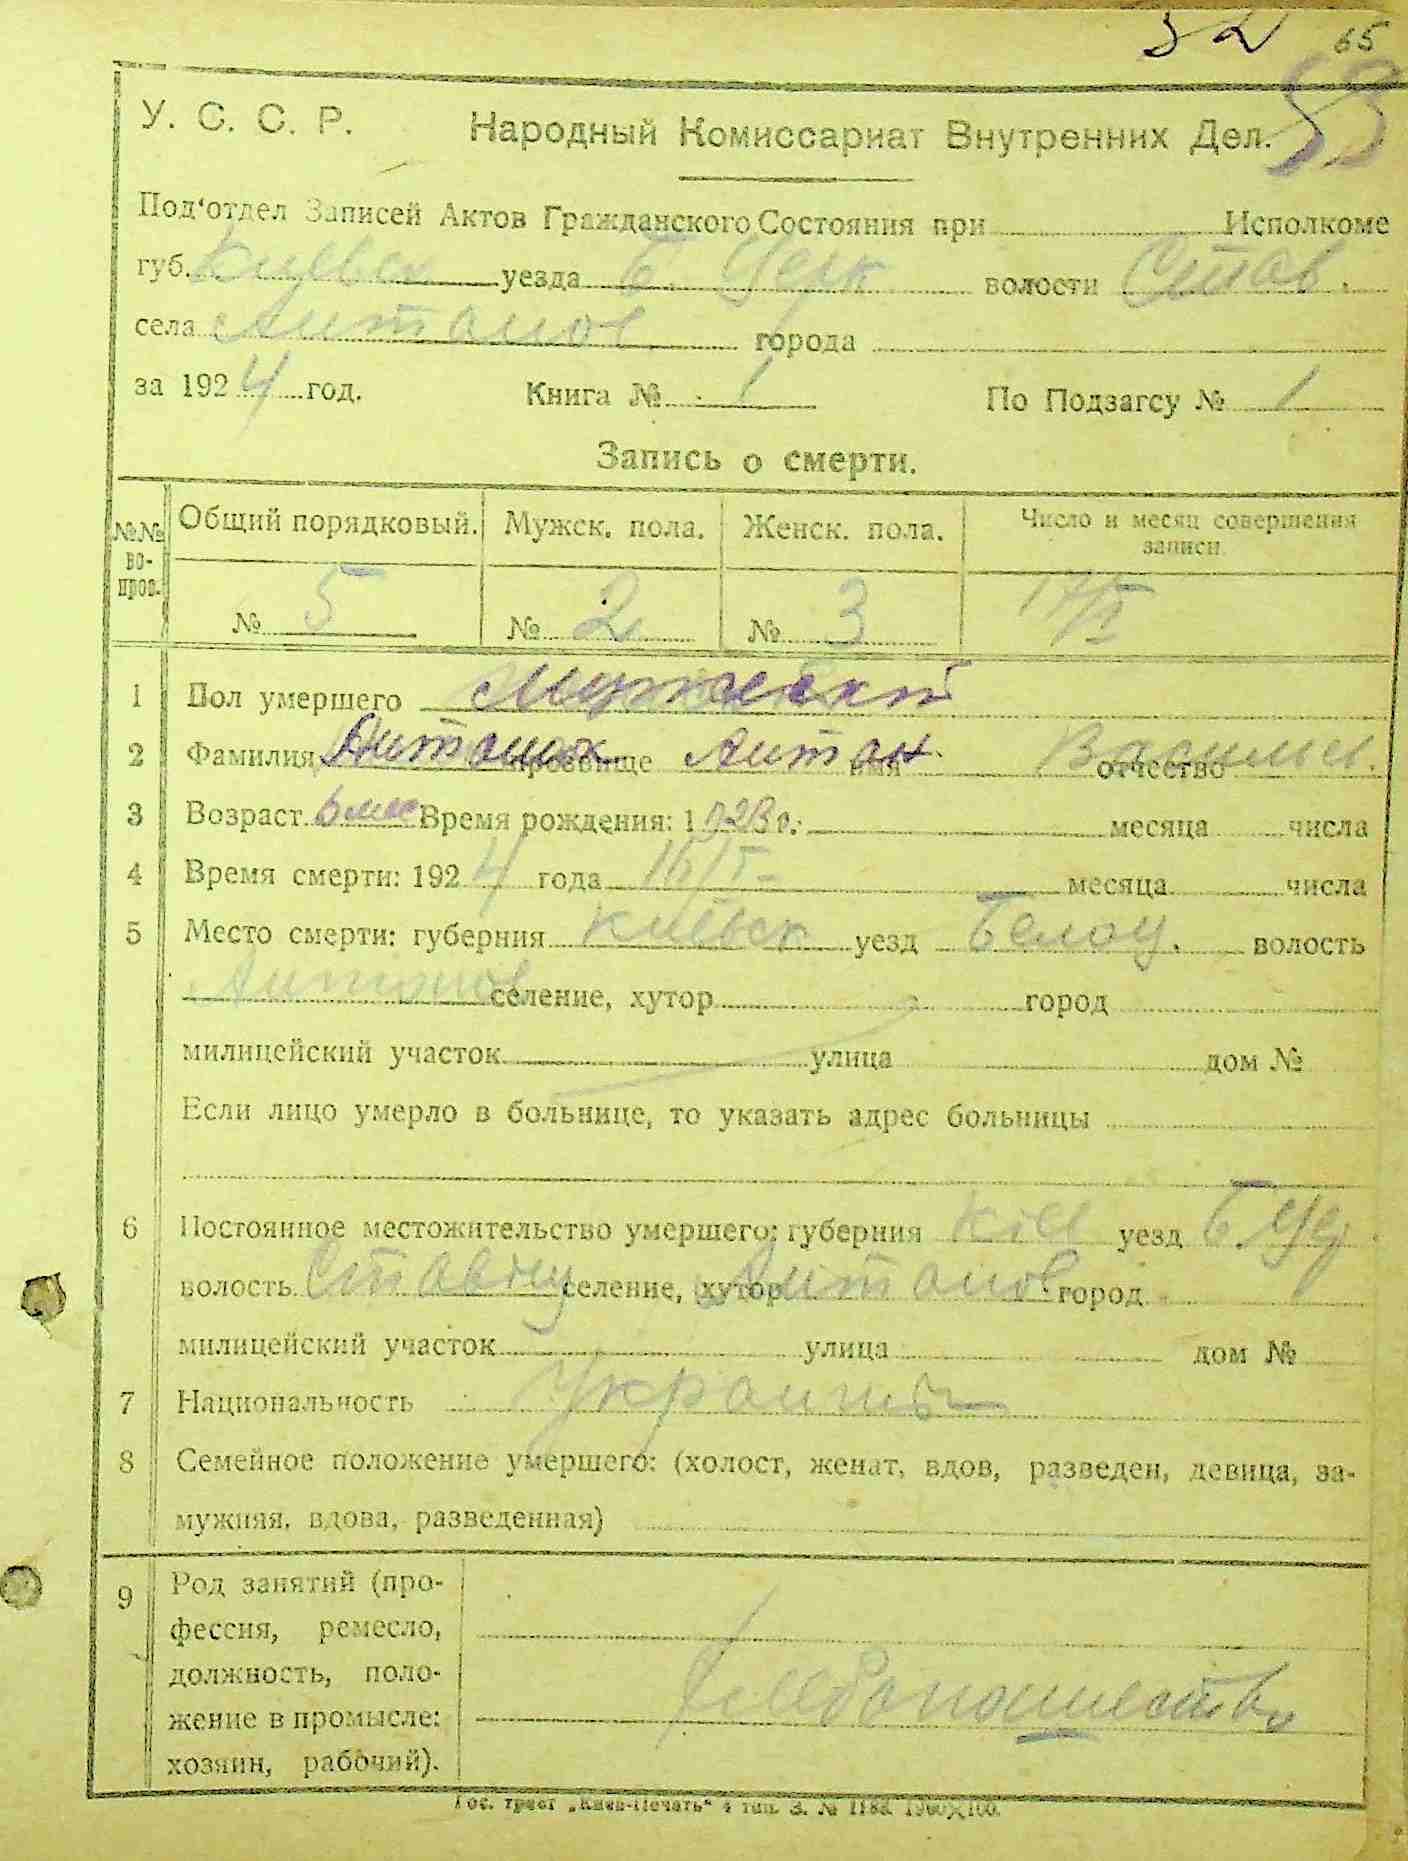 32 65
53
У. С. С. Р. Народный Комиссариат Внутренних Дел.
Под'отдел Записей Актов Гражданского Состояния при Исполкоме
губ. Киевск уезда Б. Церк волости Став.
села Антонов города
за 1924 год. Книга № 1 По Подзагсу № 1
Запись о смерти.
№№ вопров. Общий порядковый. Мужск. пола. Женск. пола. Число и месяц совершения записи
№ 5 № 2 № 3 17/I
1 Пол умершего Мужеский
2 Фамилия прозвище Антон имя отчество
3 Возраст 6 мес Время рождения: 1923 г. месяца числа
4 Время смерти: 1924 года 16/I месяца числа
5 Место смерти: губерния Киевск уезд Белоц. волость
Антонов селение, хутор город
милицейский участок улица дом №
Если лицо умерло в больнице, то указать адрес больницы
6 Постоянное местожительство умершего: губерния Киев уезд Б. Це
волость селение, хутор Антонов город
милицейский участок улица дом №
7 Национальность
8 Семейное положение умершего: (холост, женат, вдов, разведен, девица, за-
мужняя, вдова, разведенная)
9 Род занятий (про-
фессия, ремесло,
должность, поло-
жение в промысле:
хозяин, рабочий).
Хлебопашество
Гос. трест „Киев-Печать" 4 тип. З. № 1183.